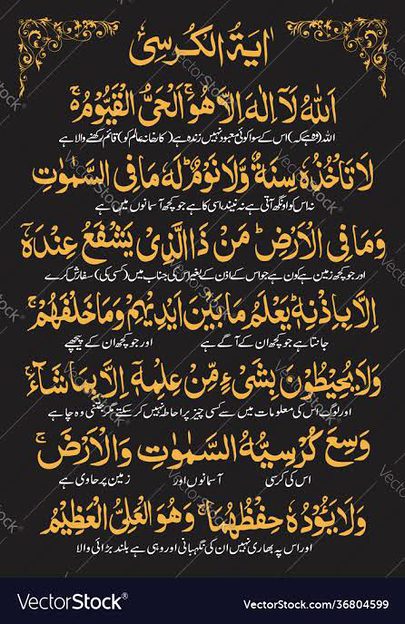 اٰیَۃُ الْکُرْسِیْ
اَللّٰهُ لَاۤ اِلٰهَ اِلَّا هُوَۚ اَلْحَیُّ الْقَیُّوْمُ ۚ۬
اللہ (وہ ہے کہ) اس کے سوا کوئی معبود نہیں زندہ ہے (کارخانہ عالم کو) قائم رکھنے والا ہے
لَا تَاْخُذُهٗ سِنَةٌ وَّلَا نَوْمٌؕ لَهٗ مَا فِی السَّمٰوٰتِ
نہ اس کو اونگھ آتی ہے نہ نیند اسی کا ہے جو کچھ آسمانوں میں ہے
وَمَا فِی الْاَرْضِؕ مَنْ ذَا الَّذِیْ یَشْفَعُ عِنْدَهٗۤ
اور جو کچھ زمین ہے کون ہے جو اس کے اذن کے بغیر اس کی جناب میں (کسی کی) سفارش کرے
اِلَّا بِاِذْنِهٖؕ یَعْلَمُ مَا بَیْنَ اَیْدِیْهِمْ وَمَا خَلْفَهُمْۚ
جانتا ہے جو کچھ ان کے آگے ہے اور جو کچھ ان کے پیچھے
وَلَا یُحِیْطُوْنَ بِشَیْءٍ مِّنْ عِلْمِهٖۤ اِلَّا بِمَا شَآءَۚ
اور لوگ اس کی معلومات میں سے کسی چیز پر احاطہ نہیں کر سکتے مگر جتنی وہ چاہے
وَسِعَ كُرْسِیُّهُ السَّمٰوٰتِ وَالْاَرْضَۚ
اس کی کرسی آسمانوں اور زمین پر حاوی ہے
وَلَا یَـُٔوْدُهٗ حِفْظُهُمَاۚ وَهُوَ الْعَلِیُّ الْعَظِیْمُ
اور اس پہ بھاری نہیں ان کی نگہبانی اور وہی ہے بلند بڑائی والا
VectorStock®
VectorStock.com/36804599